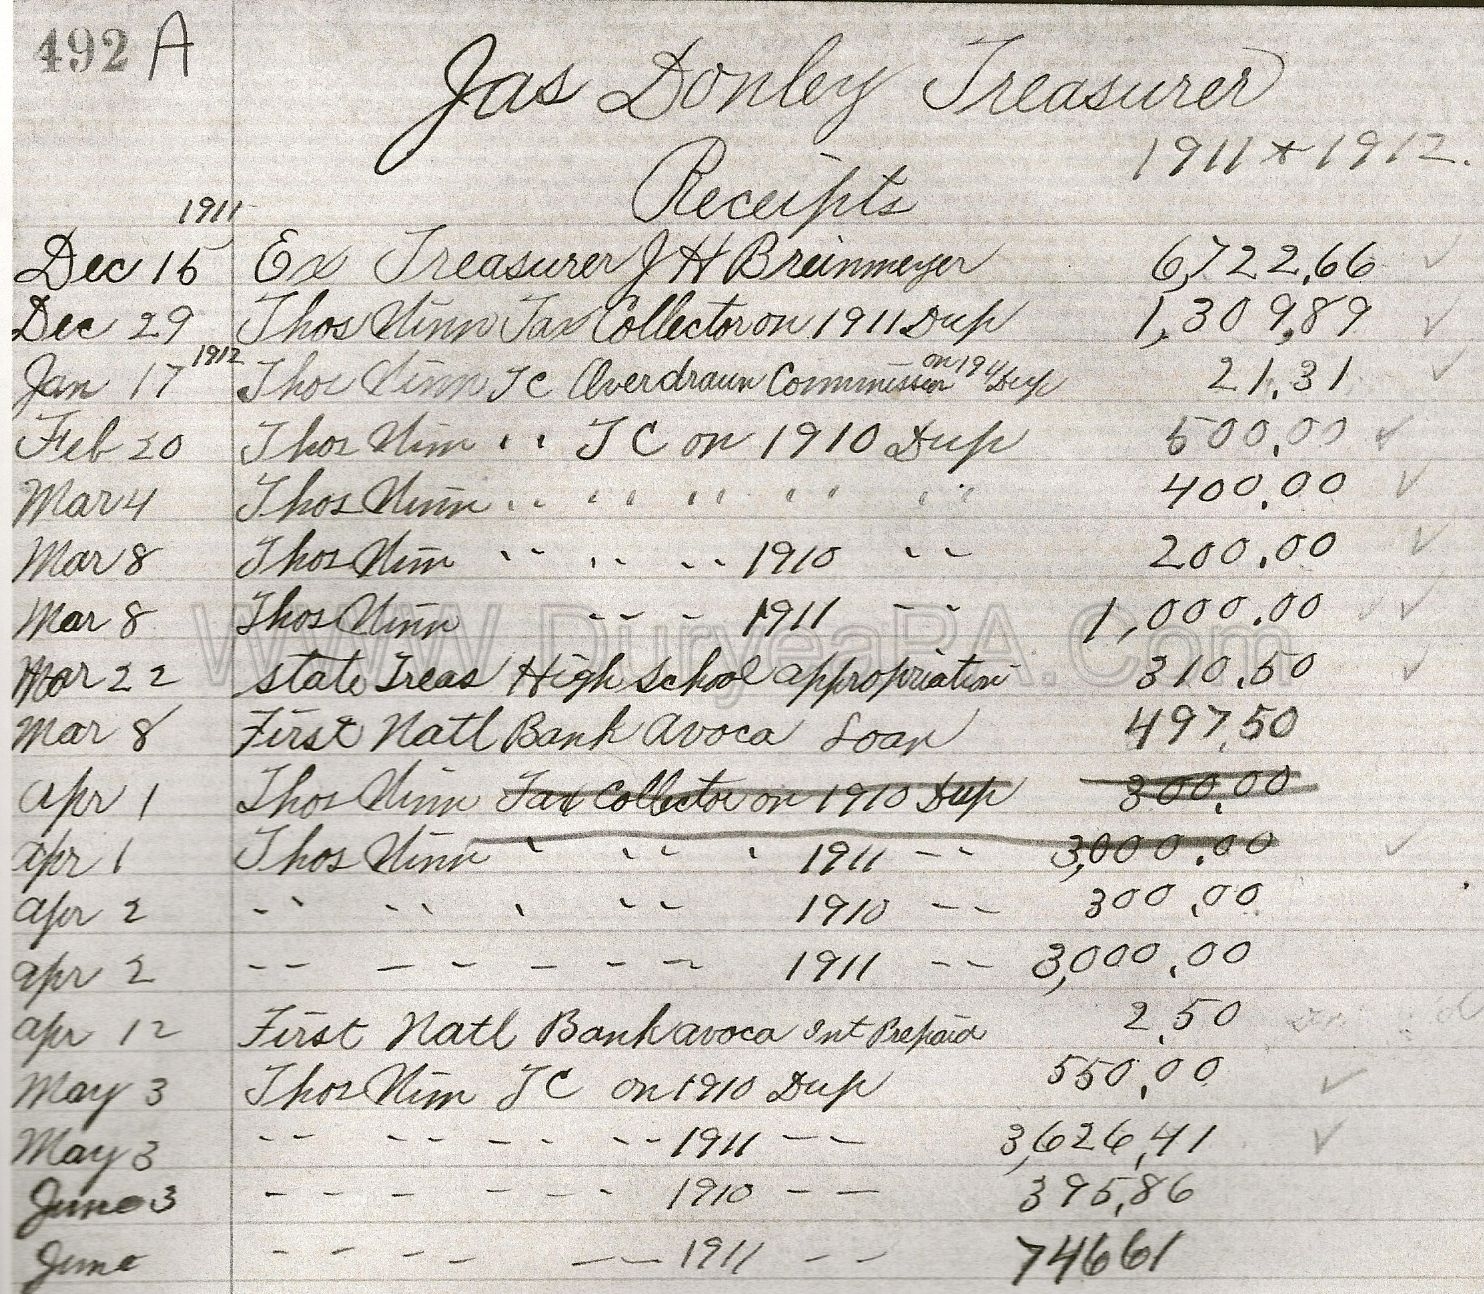 492 A
Jas Donley Treasurer
1911 + 1912.
Receipts
1911
Dec 15 Ex Treasurer J H Breinmeyer 6,722.66
Dec 29 Thos Nimn Tax Collector on 1911 Dup 1,309.89
1912
Jan 17 Thos Nimn TC Overdrawn Commission on 1911 Dup 21.31
Feb 20 Thos Nimn " TC on 1910 Dup 500.00
Mar 4 Thos Nimn " " " " " 400.00
Mar 8 Thos Nimn " " " 1910 " 200.00
Mar 8 Thos Nimn " " 1911 " 1,000.00
www.DuryeaPA.Com
Mar 22 state Treas High School appropriation 310.50
Mar 8 First Natl Bank Avoca Loan 497.50
Apr 1 Thos Nimn Tax Collector on 1910 Dup 300.00
Apr 1 Thos Nimn " " " 1911 " 3,000.00
Apr 2 " " " " 1910 " 300.00
Apr 2 " " " " 1911 " 3,000.00
Apr 12 First Natl Bank avoca Int Prepaid 2.50
May 3 Thos Nimn TC on 1910 Dup 550.00
May 3 " " " " 1911 " 3,626.41
June 3 " " " " 1910 " 395.86
June " " " " 1911 " 74661